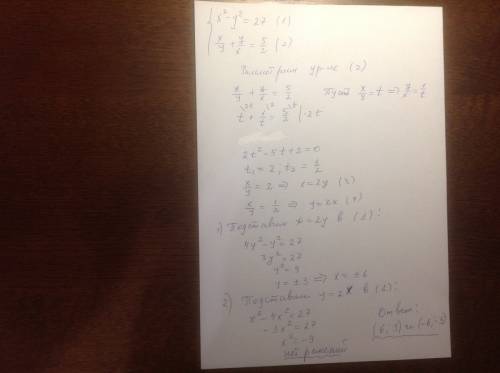 x² - y² = 27 (1)
x/y + y/x = 5/2 (2)
Рассмотрим ур-ие (2)
x/y + y/x = 5/2 Пусть x/y = t ⇒ y/x = 1/t
t + 1/t = 5/2 | · 2t
2t² - 5t + 2 = 0
t₁ = 2, t₂ = 1/2
x/y = 2 ⇒ x = 2y (3)
x/y = 1/2 ⇒ y = 2x (4)
1) Подставим x = 2y в (1):
4y² - y² = 27
3y² = 27
y² = 9
y = ±3 ⇒ x = ±6
2) Подставим y = 2x в (1):
x² - 4x² = 27
-3x² = 27
x² = -9
нет решений
Ответ:
(6; 3) и (-6; -3)